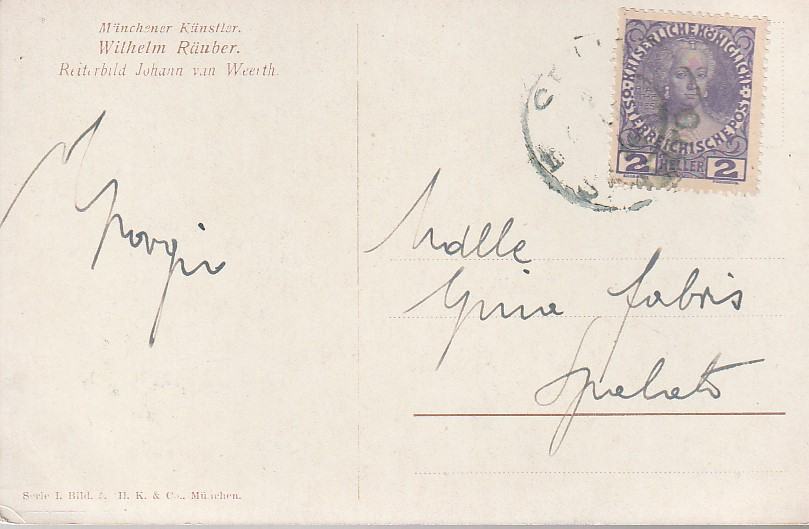 Münchener Künstler.
Wilhelm Räuber.
Reiterbild Johann van Weerth.
Giorgio
KAISERLICHE KÖNIGLICHE
ÖSTERREICHISCHE POST
2 HELLER 2
Mdlle
Gina Fabris
Spalato
Serie I. Bild. 5. H. K. & Co., München.